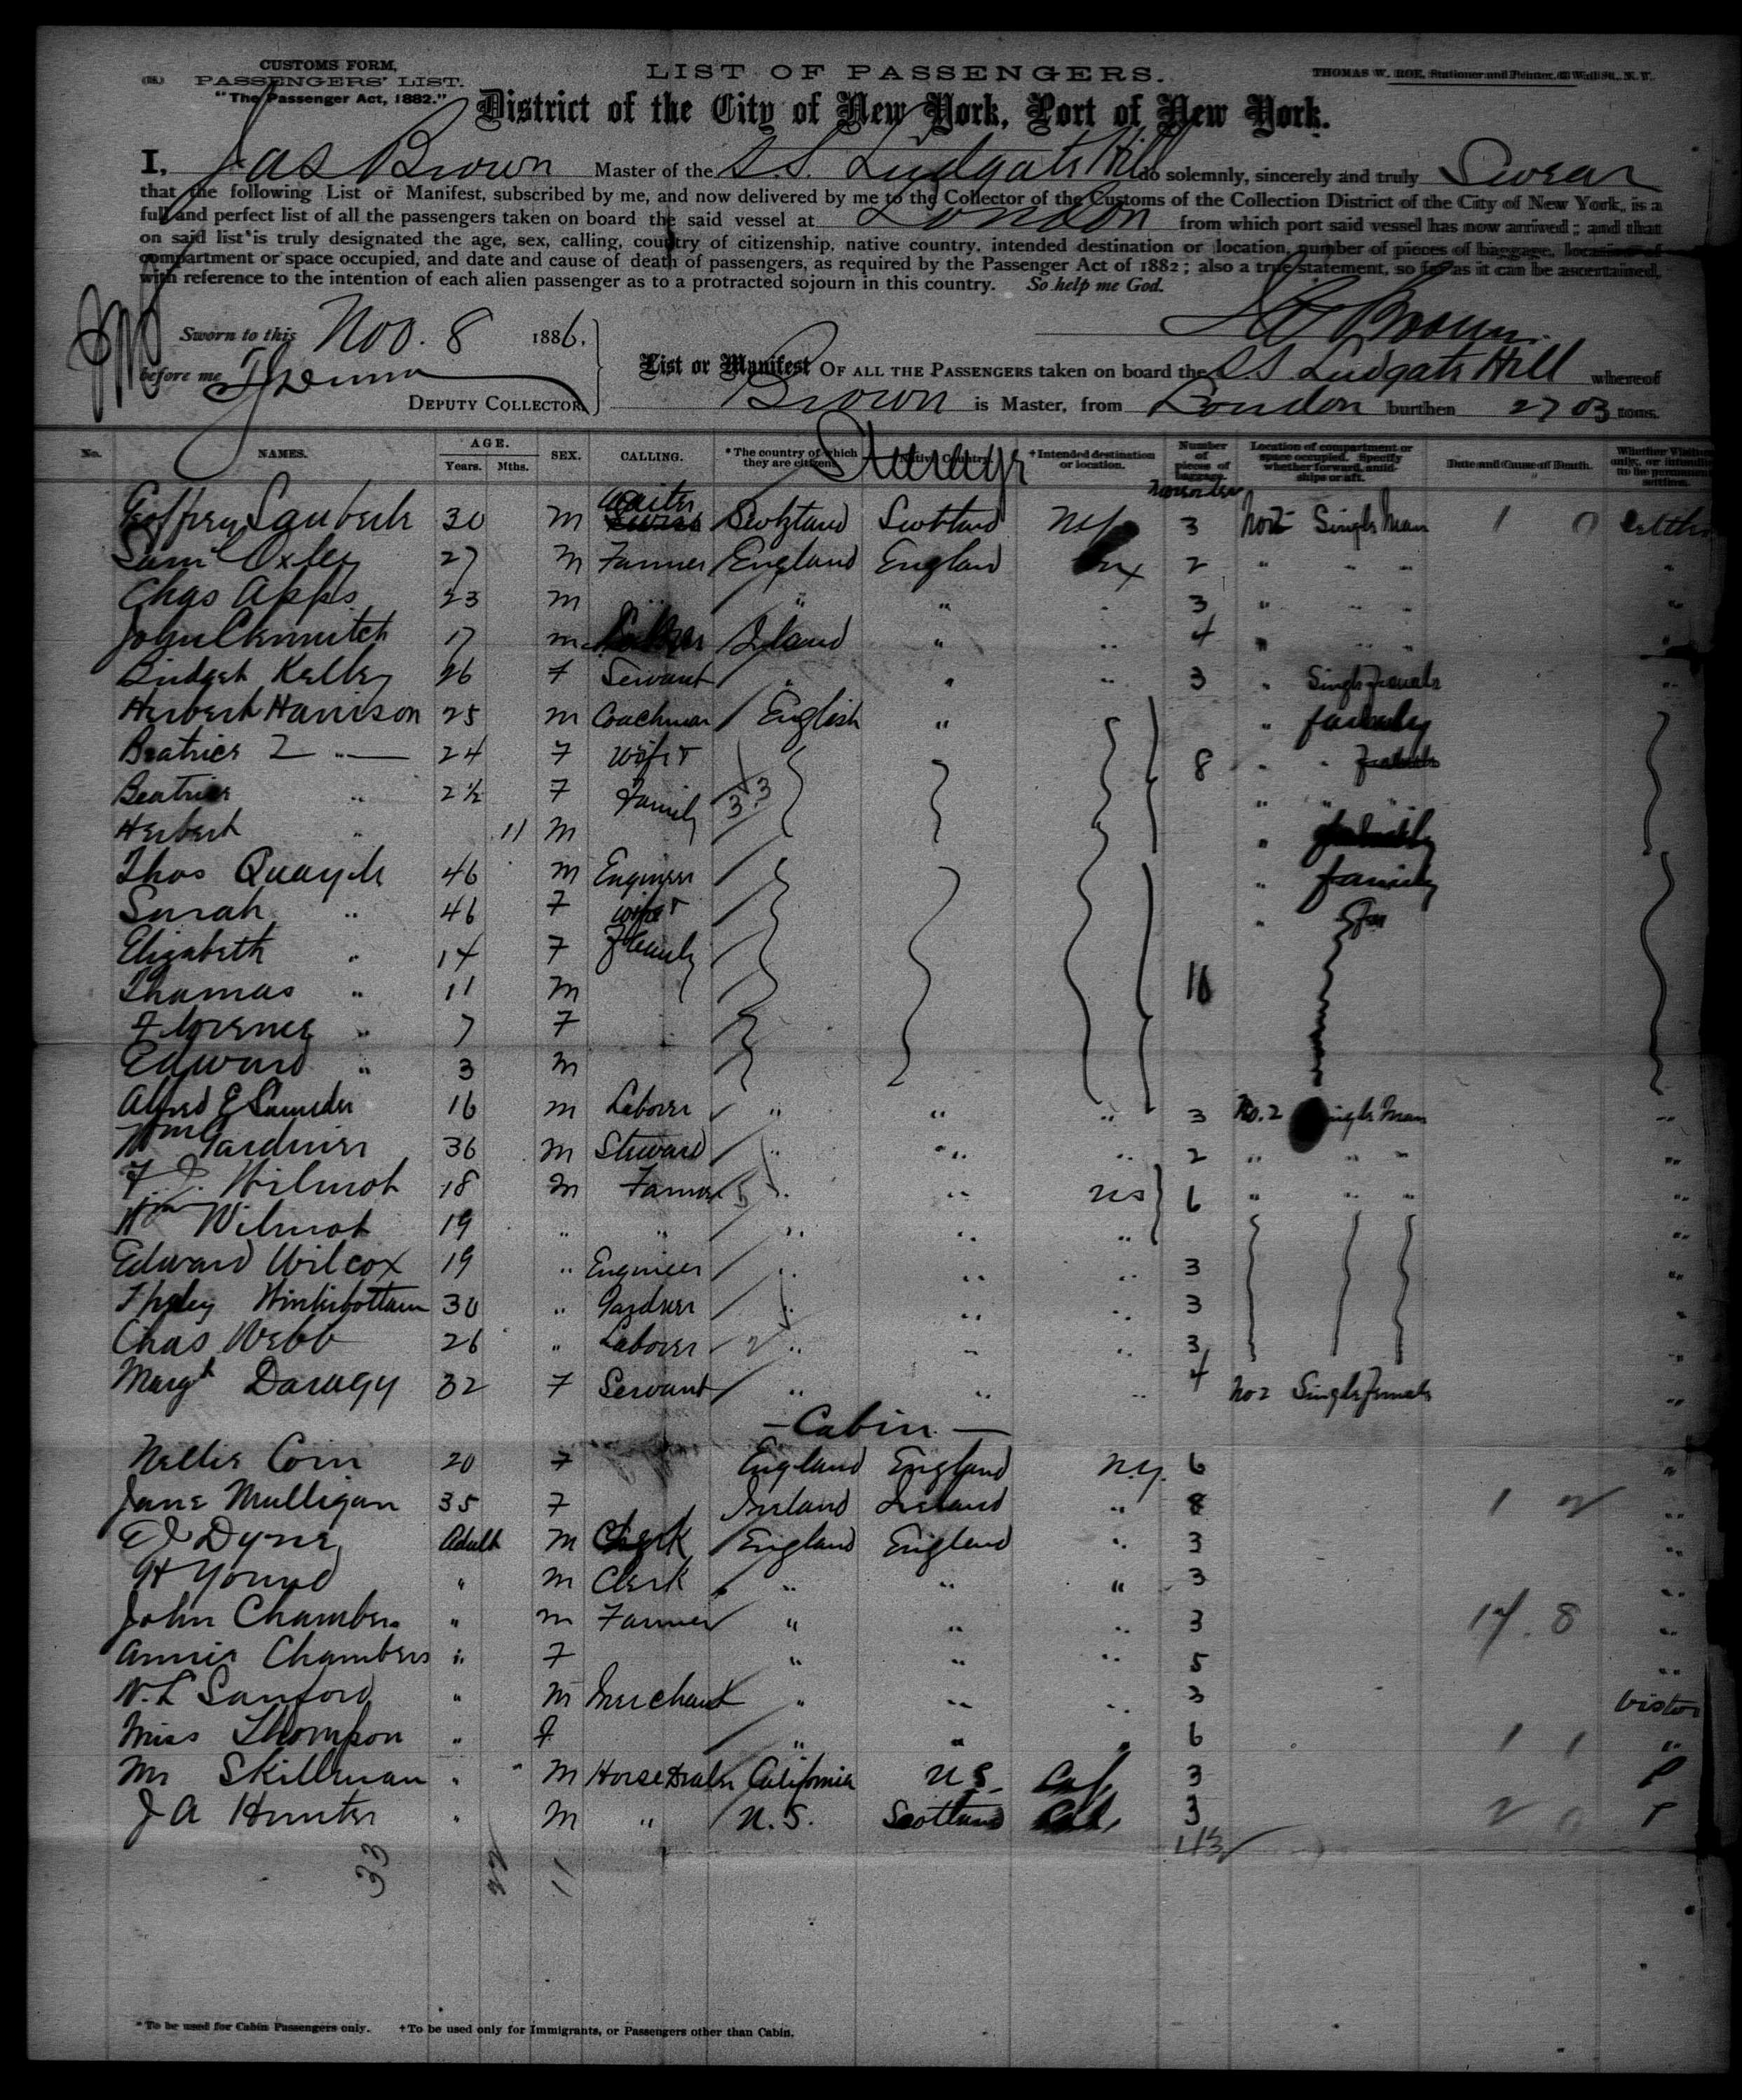 (118.)
CUSTOMS FORM,
PASSENGERS' LIST.
"The Passenger Act, 1882."
LIST OF PASSENGERS.
THOMAS W. ROE, Stationer and Printer, Wall St., N. Y.
District of the City of New York, Port of New York.
I, Jas Brown Master of the S.S. Ludgate Hill do solemnly, sincerely and truly Swear
that the following List or Manifest, subscribed by me, and now delivered by me to the Collector of the Customs of the Collection District of the City of New York, is a
full and perfect list of all the passengers taken on board the said vessel at London from which port said vessel has now arrived; and that
on said list is truly designated the age, sex, calling, country of citizenship, native country, intended destination or location, number of pieces of baggage, location of
compartment or space occupied, and date and cause of death of passengers, as required by the Passenger Act of 1882; also a true statement, so far as it can be ascertained,
with reference to the intention of each alien passenger as to a protracted sojourn in this country. So help me God.
Brown
Sworn to this Nov. 8 1886,
before me
DEPUTY COLLECTOR.
List or Manifest OF ALL THE PASSENGERS taken on board the SS Ludgate Hill whereof
Brown is Master, from London burthen 2703 tons.
No. NAMES. AGE. Years. Mths. SEX. CALLING. *The country of which they are citizens. Native Country. †Intended destination or location. Number of pieces of baggage. Location of compartment or space occupied. Specify whether forward, amidships or aft. Date and Cause of Death.
Steerage
30 M Waiter Scotland NY 3 No 2 Single Man 1 0
Saml Oxley 27 M Farmer England England 2 " " " "
Chas Apps 23 M " " " 3 " " " "
John 17 m " " 4 " " " "
Bridget Kelley 26 F Servant " " " 3 " Single Female "
Herbert Harrison 25 m Coachman English " " family
Beatrice " 24 F wife & 8 " "
Beatrice " 2½ F Family 3.3 " " "
Herbert " 11 M "
Thos Quayle 46 M Engineer " family
Sarah " 46 F wife & "
Elizabeth " 14 F Family
Thomas " 11 M
Florence " 7 F
Edward " 3 M
Alfred E Saunders 16 m Laborer " " " 3 No. 2 Single Man "
Wm Gardner 36 M Steward " " " 2 " " " "
F. J. Wilmot 18 M Farmer 5 " " US 6 " " " "
Wm Wilmot 19 " " " " " "
Edward Wilcox 19 " Engineer " " " 3 "
Winterbottom 30 " Gardner " " " 3 "
Chas Webb 26 " Laborer " " " 3 "
Margt Daragy 32 F Servant " " " 4 No 2 Single Female "
— Cabin —
Nellie Coin 20 F England England N.Y. 6 "
Jane Mulligan 35 F Ireland Ireland " 8 1 2 "
E J Dyne Adult M Clerk England England " 3 "
H Young " M Clerk " " " 3 "
John Chambers " m Farmer " " " 3 17. 8 "
Annie Chambers " F " " " 5 "
N. L Sanford " M Merchant " " " 3 Visitor
Miss Thompson " F " " " 6 1 1 "
Mr Skillman " M Horse Dealer California US Cal 3 P
J A Hunter " M " U.S. Scotland Cal. 3 2 0 P
113
33 22 11
*To be used for Cabin Passengers only. †To be used only for Immigrants, or Passengers other than Cabin.